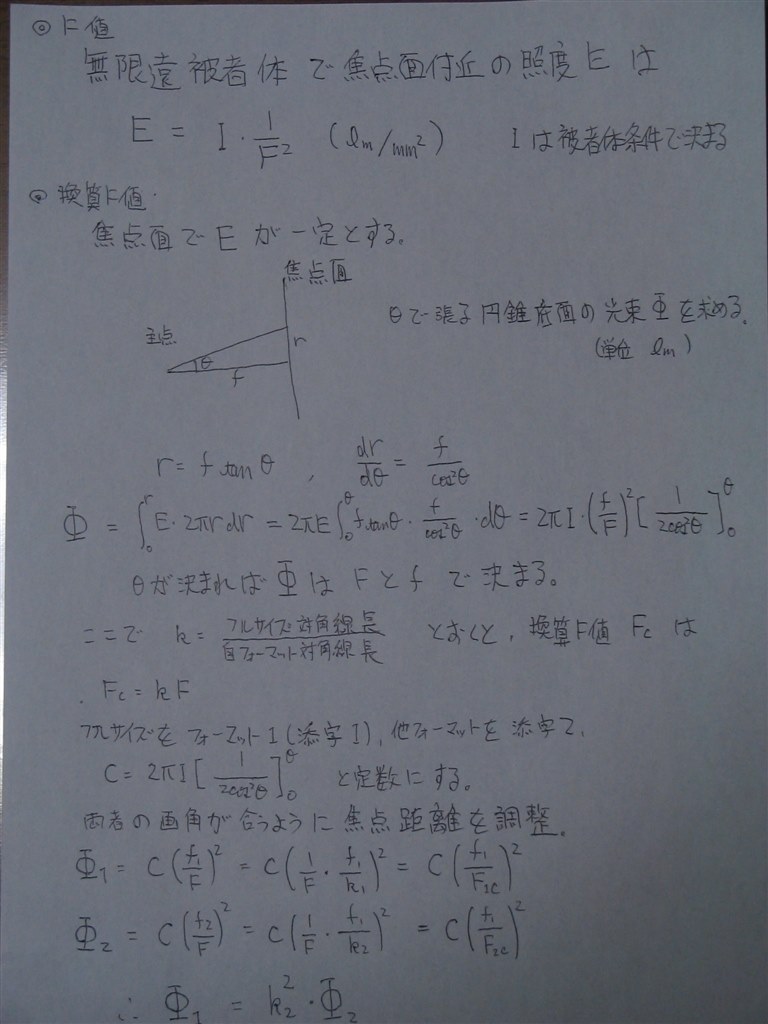 ◎ F値
無限遠被者体で焦点面付近の照度Eは
E = I・1/F² (lm/mm²) Iは被者体条件で決まる
◎ 換算F値・
焦点面でEが一定とする。
焦点面
主点 θ f r
θで張る円錐底面の光束Φを求める。
(単位 lm)
r = f tanθ , dr/dθ = f/cos²θ
Φ = ∫₀ʳ E・2πr dr = 2πE∫₀^θ f tanθ・f/cos²θ・dθ = 2πI・(f/F)²[1/2cos²θ]₀^θ
θが決まればΦはFとfで決まる。
ここで k = フルサイズ対角線長/自フォーマット対角線長 とおくと, 換算F値 Fc は
. Fc = kF
フルサイズをフォーマット1(添字1), 他フォーマットを添字2,
C = 2πI[1/2cos²θ]₀^θ と定数にする。
両者の画角が合うように焦点距離を調整.
Φ₁ = C(f₁/F)² = C(1/F・f₁/k₁)² = C(f₁/F₁c)²
Φ₂ = C(f₂/F)² = C(1/F・f₁/k₂)² = C(f₁/F₂c)²
∴ Φ₁ = k₂²・Φ₂